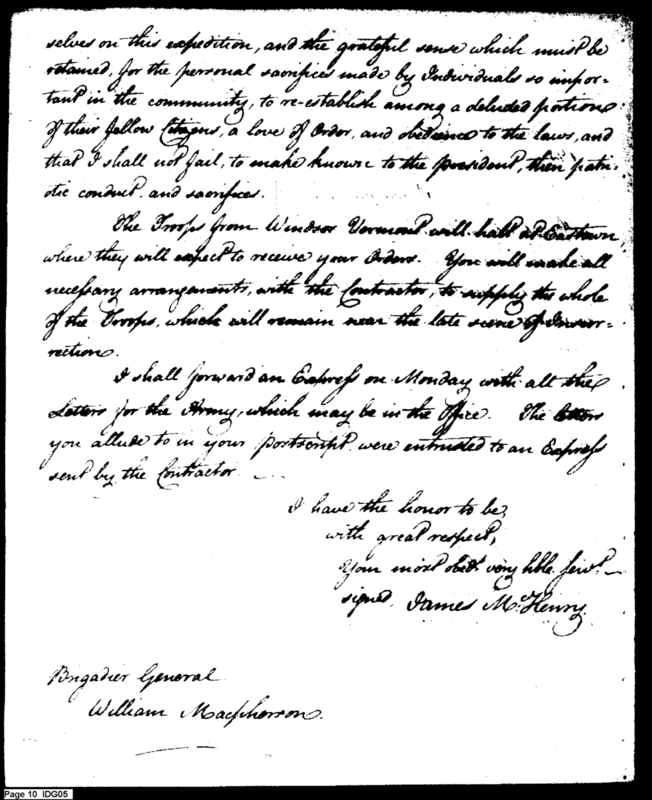 selves on this expedition, and the grateful sense which must be
retained, for the personal sacrifices made by Individuals so impor-
tant in the community, to re-establish among a deluded portion
of their fellow Citizens, a love of Order, and obedience to the laws, and
that I shall not fail, to make known to the president, their patri-
otic conduct, and sacrifices.
The Troops from Windsor Vermont will halt at Eastown,
where they will expect to receive your Orders. You will make all
necessary arrangements, with the Contractor, to supply the whole
of the Troops, which will remain near the late scene of Insur-
rection.
I shall forward an Express on Monday with all the
Letters for the Army, which may be in the Office. The letters
you allude to in your postscript, were entrusted to an Express
sent by the Contractor
I have the honor to be,
with great respect,
Your most obedt. very hble servt.
signed, James McHenry.
Brigadier General
William Macpherson.
Page 10 IDG05